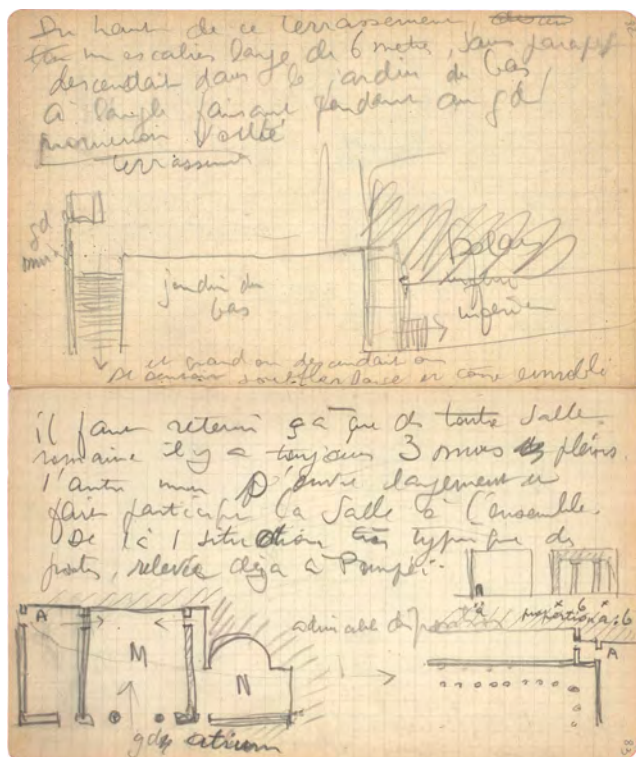 Du haut de ce terrassement,
un escalier large de 6 metres, sans parapet
descendait dans le jardin du bas
à l'angle faisant pendant au gd
terrassement
gd
mur
jardin du
bas
inférieur
et quand on descendait on
il faut retenir ça que des toute salle
romaine il y a toujours 3 murs pleins.
l'autre mur s'ouvre largement et
fait participer la salle à l'ensemble.
De là 1 situation très typique des
portes, relevée déjà à Pompéi.
A
M
N
gd atrium
admirable
a
x x
b
proportion a:b
A